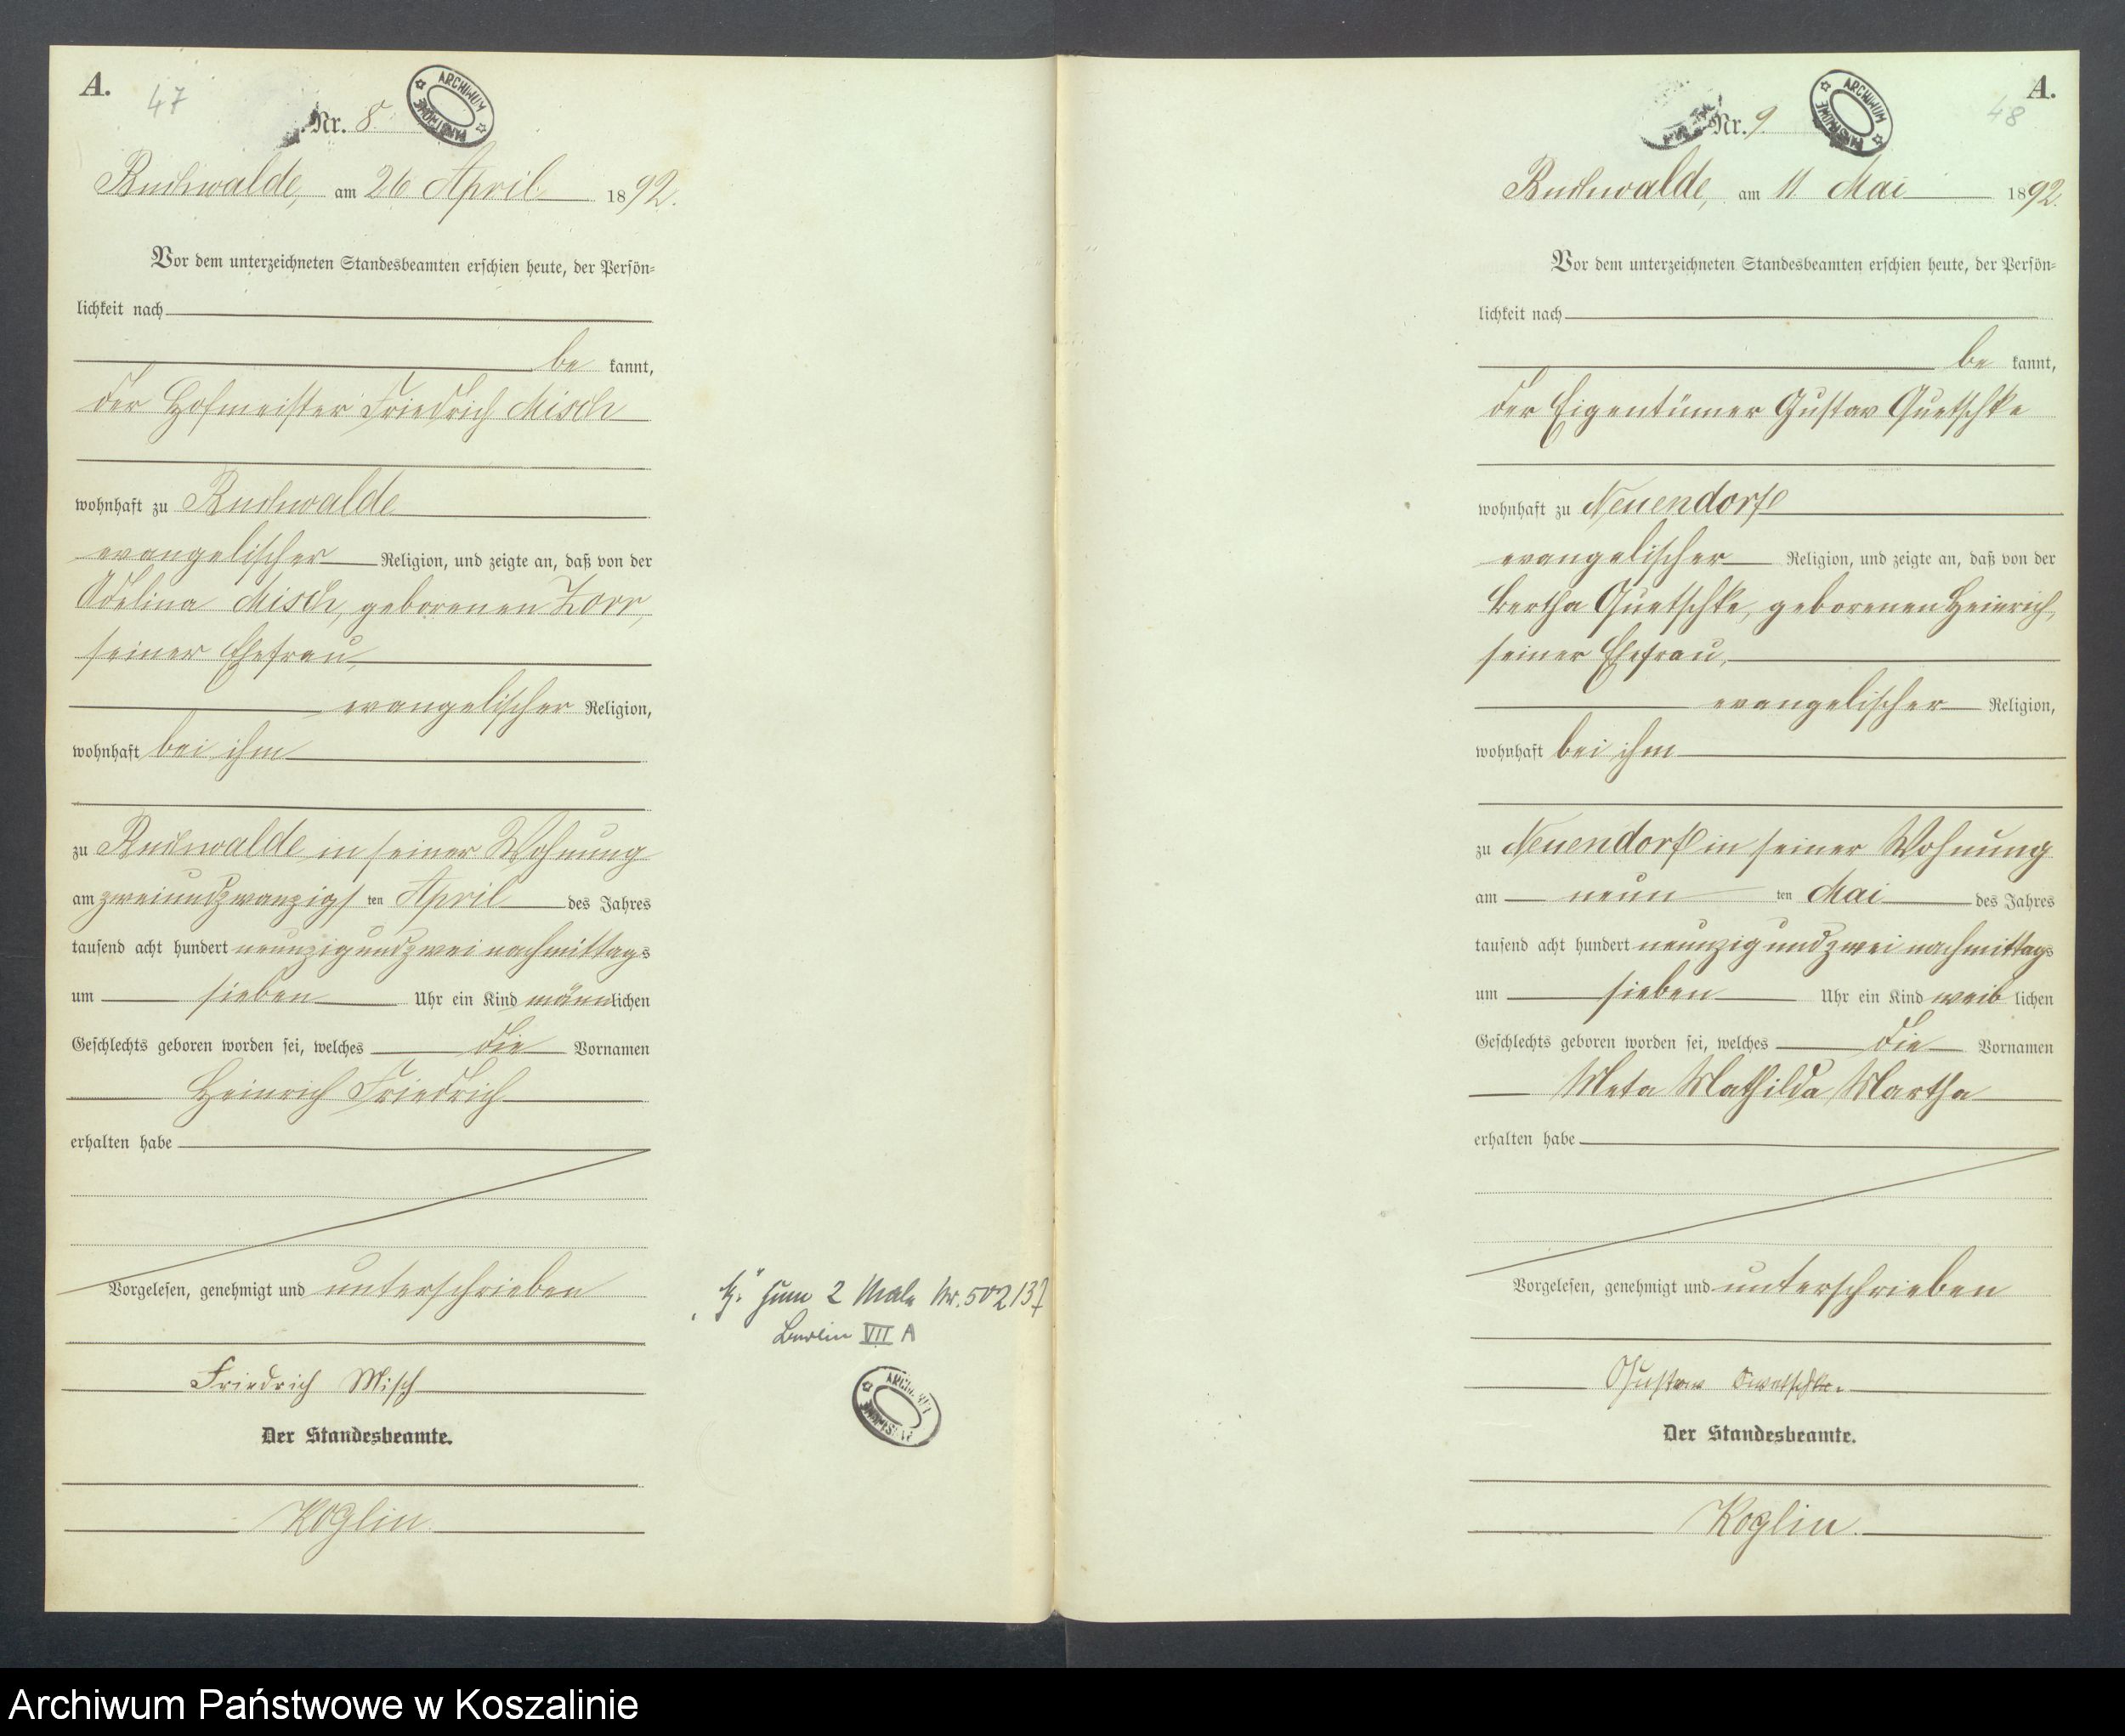 A.
47
Nr. 8
ARCHIWUM PAŃSTWOWE
Buchwalde, am 26 April 1892.
Vor dem unterzeichneten Standesbeamten erschien heute, der Persön=
lichkeit nach
be kannt,
der Hofmeister Friedrich Misch
wohnhaft zu Buchwalde
evangelischer Religion, und zeigte an, daß von der
Adelina Misch, geborenen Zorr,
seiner Ehefrau,
evangelischer Religion,
wohnhaft bei ihm
zu Buchwalde in seiner Wohnung
am zweiundzwanzigs ten April des Jahres
tausend acht hundert neunzig und zwei nachmittags
um sieben Uhr ein Kind männlichen
Geschlechts geboren worden sei, welches die Vornamen
Heinrich Friedrich
erhalten habe
Vorgelesen, genehmigt und unterschrieben
Friedrich Misch
Der Standesbeamte.
Koglin
zum 2 Male Nr. 502137
Berlin VII A
ARCHIWUM PAŃSTWOWE
A.
48
Nr. 9.
ARCHIWUM PAŃSTWOWE
Buchwalde, am 11. Mai 1892.
Vor dem unterzeichneten Standesbeamten erschien heute, der Persön=
lichkeit nach
be kannt,
der Eigentümer Gustav Quetschke
wohnhaft zu Neuendorf
evangelischer Religion, und zeigte an, daß von der
Bertha Quetschke, geborenen Heinrich,
seiner Ehefrau,
evangelischer Religion,
wohnhaft bei ihm
zu Neuendorf in seiner Wohnung
am neun ten Mai des Jahres
tausend acht hundert neunzig und zwei nachmittags
um sieben Uhr ein Kind weib lichen
Geschlechts geboren worden sei, welches die Vornamen
Meta Mathilda Martha
erhalten habe
Vorgelesen, genehmigt und unterschrieben
Gustav
Der Standesbeamte.
Koglin.
Archiwum Państwowe w Koszalinie